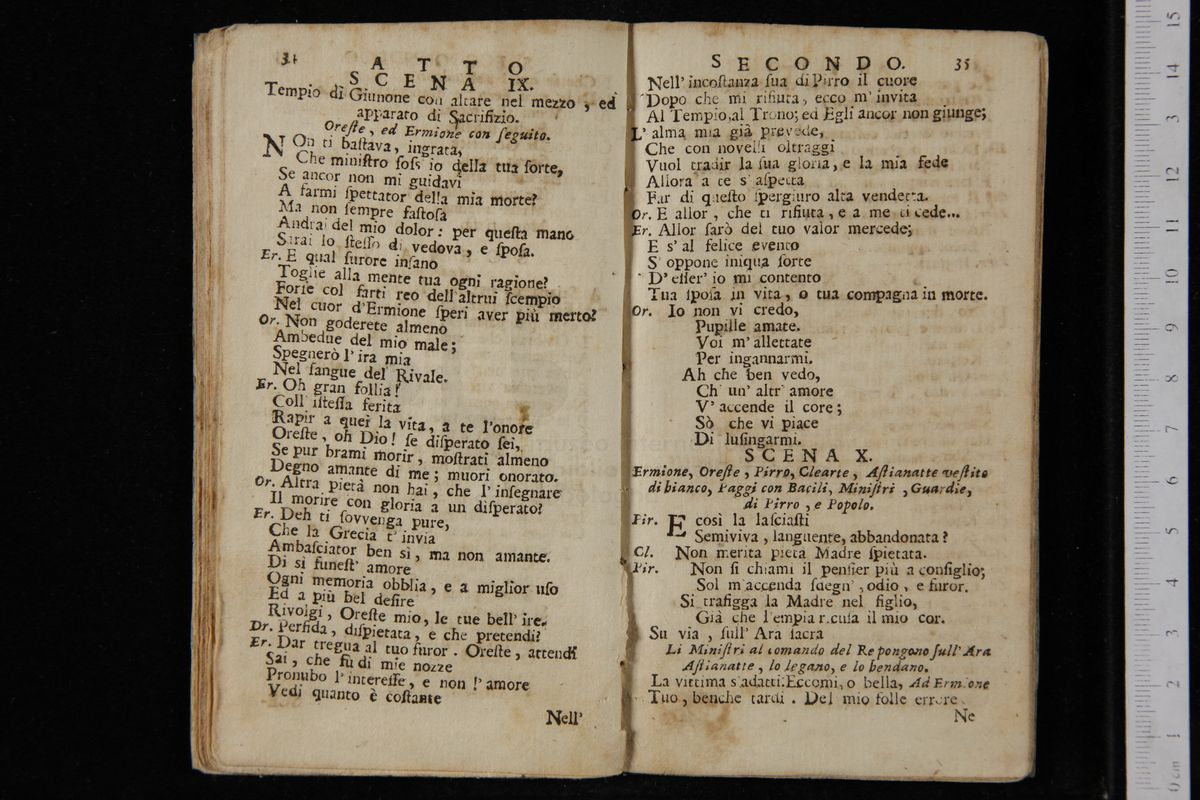 34
A T T O
S C E N A IX.
Tempio di Giunone con altare nel mezzo , ed
apparato di Sacrifizio.
Oreſte , ed Ermione con ſeguito.
NOn ti baſtava, ingrata,
Che miniſtro foſs' io della tua ſorte,
Se ancor non mi guidavi
A farmi ſpettator della mia morte?
Ma non ſempre faſtoſa
Andrai del mio dolor : per queſta mano
Sarai lo ſteſſo dì vedova , e ſpoſa.
Er. E qual furore inſano
Toglie alla mente tua ogni ragione?
Forſe col farti reo dell'altrui ſcempio
Nel cuor d'Ermione ſperi aver più merto?
Or. Non goderete almeno
Ambedue del mio male ;
Spegnerò l' ira mia
Nel ſangue del Rivale.
Er. Oh gran follia!
Coll' iſteſſa ferita
Rapir a quei la vita, a te l'onore
Oreſte , oh Dio! ſe diſperato ſei,
Se pur brami morir, moſtrati almeno
Degno amante di me ; muori onorato.
Or. Altra pietà non hai , che l' inſegnare
Il morire con gloria a un diſperato?
Er. Deh ti ſovvenga pure,
Che la Grecia t' invia
Ambaſciator ben sì , ma non amante.
Di sì funeſt' amore
Ogni memoria obblia , e a miglior uſo
Ed a più bel deſire
Rivolgi , Oreſte mio, le tue bell' ire.
Or. Perfida , diſpietata , e che pretendi?
Er. Dar tregua al tuo furor . Oreſte , attendi
Sai , che fu di mie nozze
Pronubo l' intereſſe , e non l' amore
Vedi quanto è coſtante
Nell'
S E C O N D O. 35
Nell' incoſtanza ſua di Pirro il cuore
Dopo che mi rifiuta , ecco m' invita
Al Tempio,al Trono; ed Egli ancor non giunge;
L' alma mia già prevede,
Che con novelli oltraggi
Vuol tradir la ſua gloria , e la mia fede
Allora a te s' aſpetta
Far di queſto ſpergiuro alta vendetta.
Or. E allor , che ti rifiuta , e a me ti cede...
Er. Allor ſarò del tuo valor mercede;
E s' al felice evento
S' oppone iniqua ſorte
D' eſſer' io mi contento
Tua ſpoſa in vita , o tua compagna in morte.
Or. Io non vi credo,
Pupille amate.
Voi m' allettate
Per ingannarmi.
Ah che ben vedo,
Ch' un' altr' amore
V' accende il core ;
Sò che vi piace
Di luſingarmi.
S C E N A X.
Ermione, Oreſte , Pirro, Clearte , Aſtianatte veſtito
di bianco, Paggi con Bacili, Miniſtri , Guardie,
di Pirro , e Popolo.
Pir. E così la laſciaſti
Semiviva , languente, abbandonata ?
Cl. Non merita pietà Madre ſpietata.
Pir. Non ſi chiami il penſier più a conſiglio;
Sol m'accenda ſdegn' , odio , e furor.
Si trafigga la Madre nel figlio,
Già che l'empia ricuſa il mio cor.
Su via , ſull' Ara ſacra
Li Miniſtri al comando del Re pongono ſull' Ara
Aſtianatte , lo legano, e lo bendano.
La vittima s'adatti: Eccomi, o bella, Ad Ermione
Tuo , benche tardi . Del mio folle errore
Ne